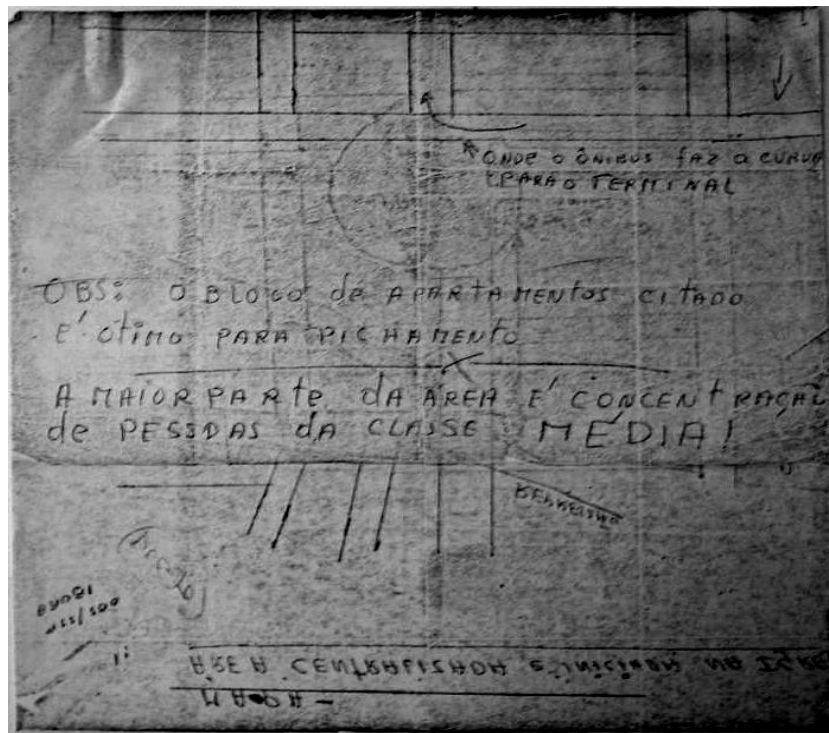 ONDE O ÔNIBUS FAZ A CURVA
PARA O TERMINAL
OBS: O BLOCO de APARTAMENTOS CITADO
E' OTIMO PARA PICHAMENTO
A MAIOR PARTE dA ÁREA E' CONCENTRAÇÃO
de PESSOAS dA CLASSE MÉDIA!
REPRESSÃO
1:
ÁREA CENTRALIZADA e iniciada NA IGRE
MAPA -